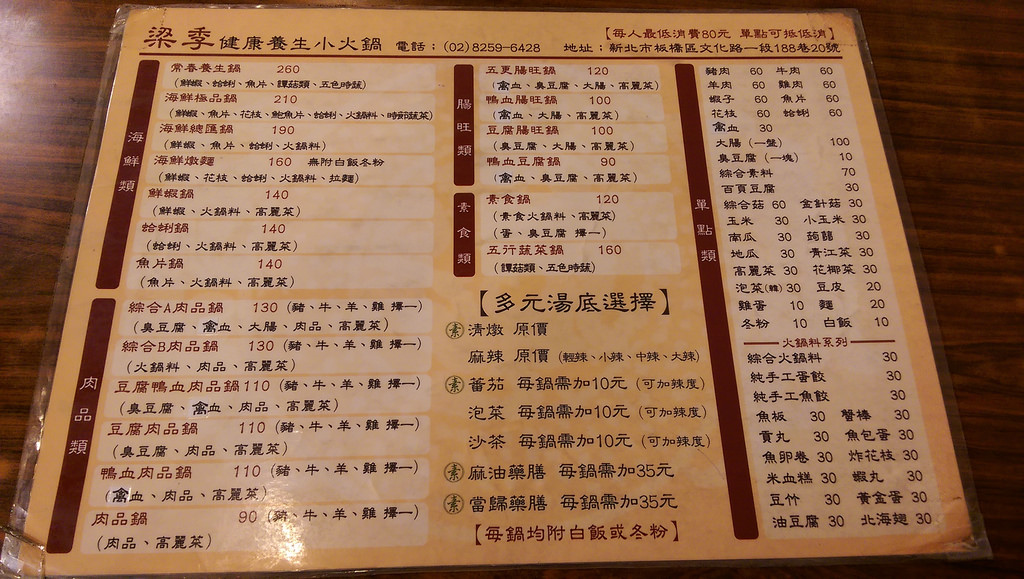 梁季健康養生小火鍋 電話：(02)8259-6428
【每人最低消費80元 單點可抵低消】
地址：新北市板橋區文化路一段188巷20號
海鮮類
常春養生鍋 260
(鮮蝦、蛤蜊、魚片、譚菇類、五色時蔬)
海鮮極品鍋 210
(鮮蝦、魚片、花枝、鮑魚片、蛤蜊、火鍋料、時節蔬菜)
海鮮總匯鍋 190
(鮮蝦、魚片、蛤蜊、火鍋料)
海鮮燉麵 160 無附白飯冬粉
(鮮蝦、花枝、蛤蜊、火鍋料、拉麵)
鮮蝦鍋 140
(鮮蝦、火鍋料、高麗菜)
蛤蜊鍋 140
(蛤蜊、火鍋料、高麗菜)
魚片鍋 140
(魚片、火鍋料、高麗菜)
肉品類
綜合A肉品鍋 130 (豬、牛、羊、雞 擇一)
(臭豆腐、禽血、大腸、肉品、高麗菜)
綜合B肉品鍋 130 (豬、牛、羊、雞 擇一)
(火鍋料、肉品、高麗菜)
豆腐鴨血肉品鍋110 (豬、牛、羊、雞 擇一)
(臭豆腐、禽血、肉品、高麗菜)
豆腐肉品鍋 110 (豬、牛、羊、雞 擇一)
(臭豆腐、肉品、高麗菜)
鴨血肉品鍋 110 (豬、牛、羊、雞 擇一)
(禽血、肉品、高麗菜)
肉品鍋 90 (豬、牛、羊、雞 擇一)
(肉品、高麗菜)
腸旺類
五更腸旺鍋 120
(禽血、臭豆腐、大腸、高麗菜)
鴨血腸旺鍋 100
(禽血、大腸、高麗菜)
豆腐腸旺鍋 100
(臭豆腐、大腸、高麗菜)
鴨血豆腐鍋 90
(禽血、臭豆腐、高麗菜)
素食類
素食鍋 120
(素食火鍋料、高麗菜)
(蛋、臭豆腐 擇一)
五行蔬菜鍋 160
(譚菇類、五色時蔬)
【多元湯底選擇】
素 清燉 原價
麻辣 原價 (輕辣、小辣、中辣、大辣)
素 蕃茄 每鍋需加10元 (可加辣度)
泡菜 每鍋需加10元 (可加辣度)
沙茶 每鍋需加10元 (可加辣度)
素 麻油藥膳 每鍋需加35元
素 當歸藥膳 每鍋需加35元
【每鍋均附白飯或冬粉】
單點類
豬肉 60 牛肉 60
羊肉 60 雞肉 60
蝦子 60 魚片 60
花枝 60 蛤蜊 60
禽血 30
大腸 (一盤) 100
臭豆腐 (一塊) 10
綜合素料 70
百頁豆腐 30
綜合菇 60 金針菇 30
玉米 30 小玉米 30
南瓜 30 蒟蒻 30
地瓜 30 青江菜 30
高麗菜 30 花椰菜 30
泡菜(韓)30 豆皮 20
雞蛋 10 麵 20
冬粉 10 白飯 10
火鍋料系列
綜合火鍋料 30
純手工蛋餃 30
純手工魚餃 30
魚板 30 蟹棒 30
貢丸 30 魚包蛋 30
魚卵卷 30 炸花枝 30
米血糕 30 蝦丸 30
豆竹 30 黃金蛋 30
油豆腐 30 北海翅 30